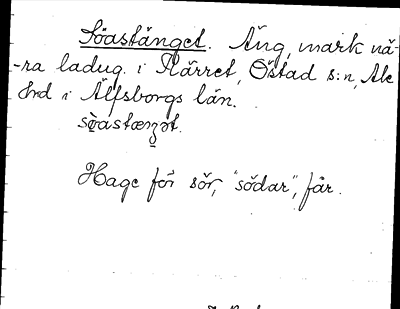 Söastänget. Äng, mark nä-
-ra ladug. i Kärret, Östad s:n, Ale
hrd i Älfsborgs län.
Hage för sör, "södar", får.